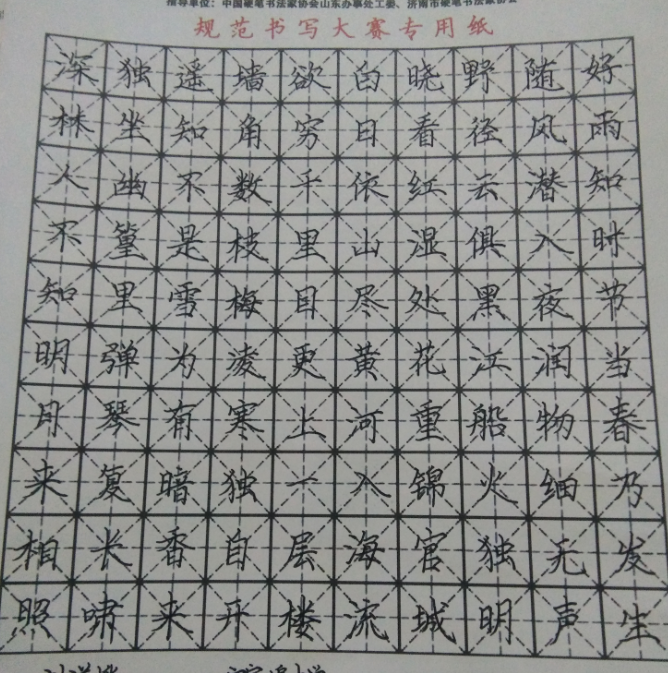 指导单位：中国硬笔书法家协会山东办事处工委、济南市硬笔书法家协会
规范书写大赛专用纸
好雨知时节当春乃发生
随风潜入夜润物细无声
野径云俱黑江船火独明
晓看红湿处花重锦官城
白日依山尽黄河入海流
欲穷千里目更上一层楼
墙角数枝梅凌寒独自开
遥知不是雪为有暗香来
独坐幽篁里弹琴复长啸
深林人不知明月来相照